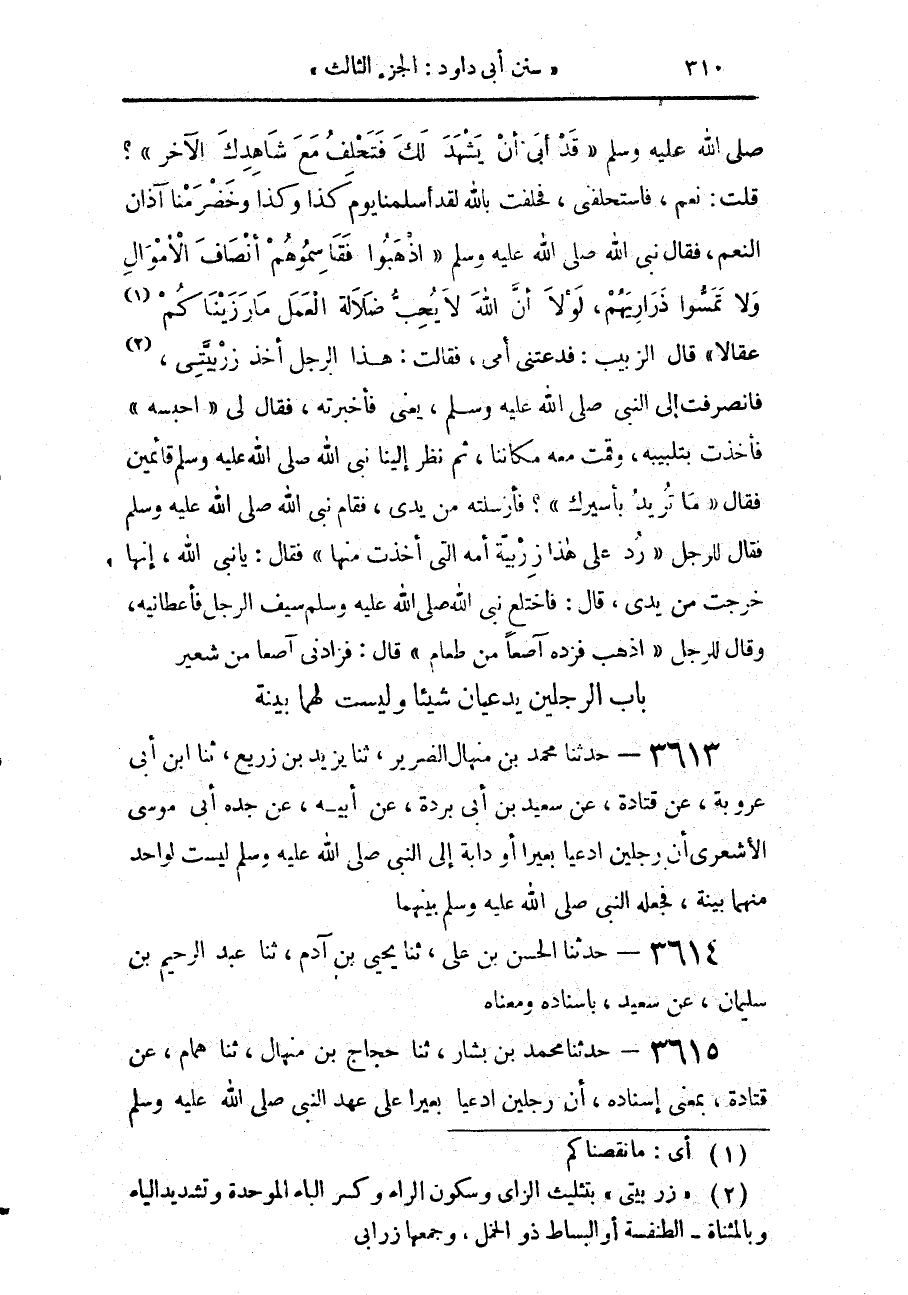 ٣١٠ « سنن أبى داود : الجزء الثالث »
صلى الله عليه وسلم « قَدْ أبَى أنْ يَشْهَدَ لَكَ فَتَحْلِفُ مَعَ شَاهِدِكَ الآخر » ؟
قلت : نعم ، فاستحلفنى ، فحلفت بالله لقد أسلمنا يوم كذا وكذا وخَضْرَمْنا آذان
النعم ، فقال نبى الله صلى الله عليه وسلم « اذْهَبُوا فَقَاسِمُوهُمْ أنْصَافَ الْأمْوَالِ
وَلَا تَمَسُّوا ذَرَارِيَهُمْ ، لَوْلاَ أنَّ اللهَ لاَ يُحِبُّ ضَلَالَةَ الْعَمَل مَا رَزَيْنَا كُمْ (١)
عقالا » قال الزبيب : فدعتنى أمى ، فقالت : هذا الرجل أخذ زرْبِيَّتِى ، (٢)
فانصرفت إلى النبى صلى الله عليه وسلم ، يعنى فأخبرته ، فقال لى « احبسه »
فأخذت بتلبيبه ، وقمت معه مكاننا ، ثم نظر إلينا نبى الله صلى الله عليه وسلم قائمين
فقال « مَا تُرِيدُ بأسيرك » ؟ فأرسلته من يدى ، فقام نبى الله صلى الله عليه وسلم
فقال للرجل « رُد على هٰذا زِرْبيّة أمه التى أخذت منها » فقال : يا نبى الله ، إنها
خرجت من يدى ، قال : فاختلع نبى الله صلى الله عليه وسلم سيف الرجل فأعطانيه ،
وقال للرجل « اذهب فزده آصعاً من طعام » قال : فزادنى آصعا من شعير
باب الرجلين يدعيان شيئا وليست لهما بينة
٣٦١٣ — حدثنا محمد بن منهال الضرير ، ثنا يزيد بن زريع ، ثنا ابن أبى
عروبة ، عن قتادة ، عن سعيد بن أبى بردة ، عن أبيه ، عن جده أبى موسى
الأشعرى أن رجلين ادعيا بعيرا أو دابة إلى النبى صلى الله عليه وسلم ليست لواحد
منهما بينة ، فجعله النبى صلى الله عليه وسلم بينهما
٣٦١٤ — حدثنا الحسن بن على ، ثنا يحيى بن آدم ، ثنا عبد الرحيم بن
سليمان ، عن سعيد ، باسناده ومعناه
٣٦١٥ — حدثنا محمد بن بشار ، ثنا حجاج بن منهال ، ثنا همام ، عن
قتادة ، بمعنى إسناده ، أن رجلين ادعيا بعيرا على عهد النبى صلى الله عليه وسلم
(١) أى : ما نقصنا كم
(٢) « زربيتى » بتثليث الزاى وسكون الراء وكسر الباء الموحدة وتشديد الياء
وبالمثناة ــ الطنفسة أو البساط ذو الخمل ، وجمعها زرابى